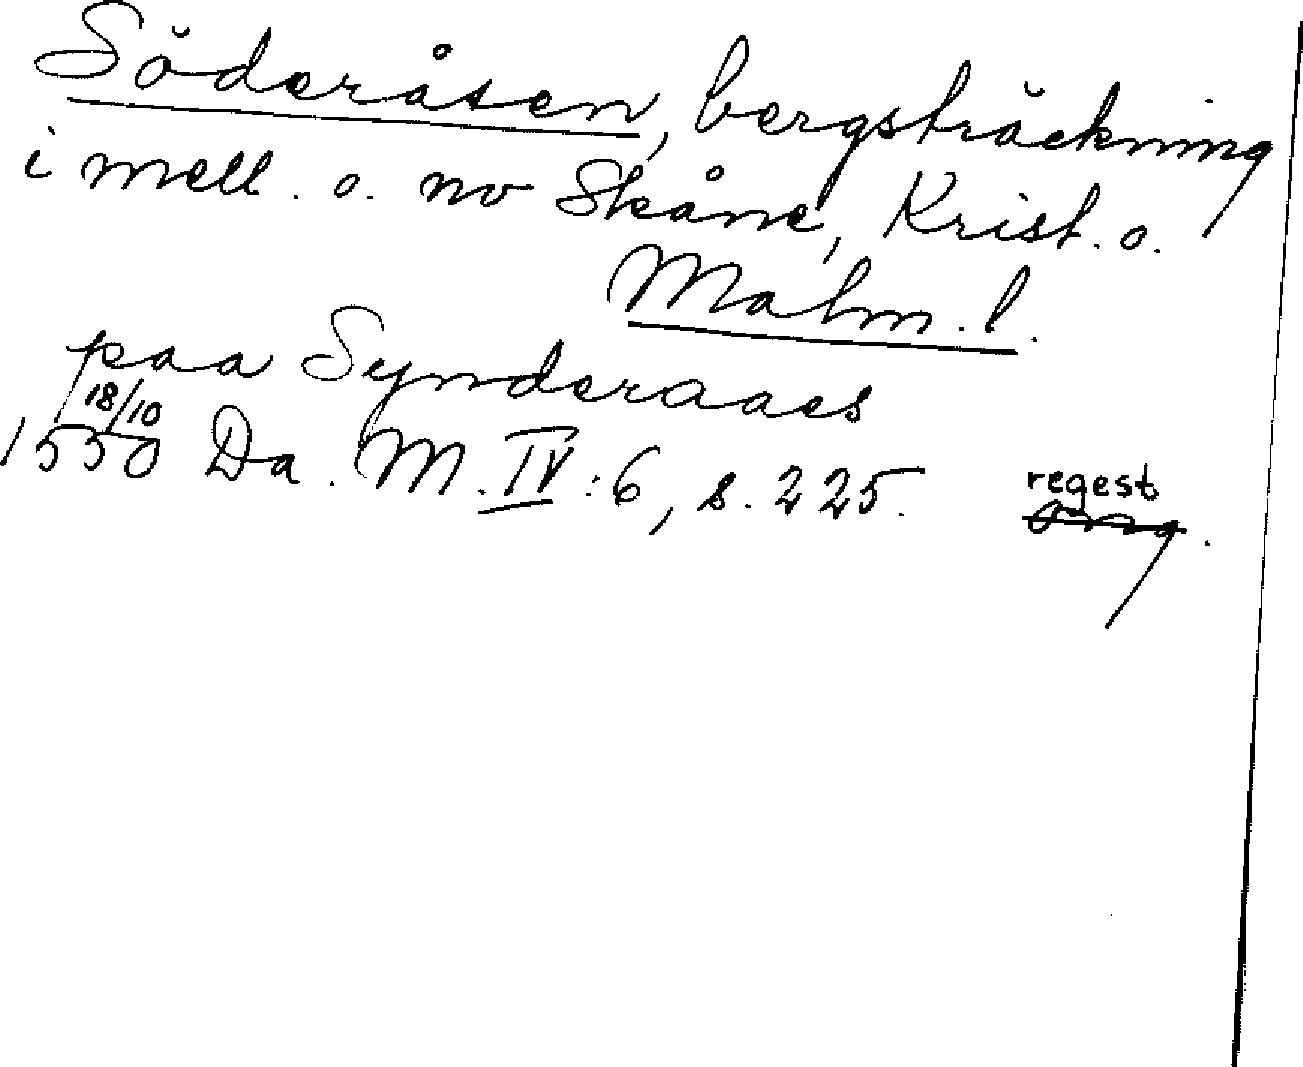 Söderåsen, bergsträckning
i mell. o. nv Skåne, Krist. o.
Malm. l.
paa Synderaaes
18/10
1550 Da. M. IV:6, s. 225. regest
omg.